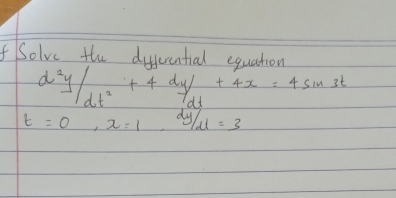 f Solve the differential equation
d²y/dt² + 4 dy/dt + 4x = 4 sin 3t
t = 0 , x = 1 , dy/dt = 3